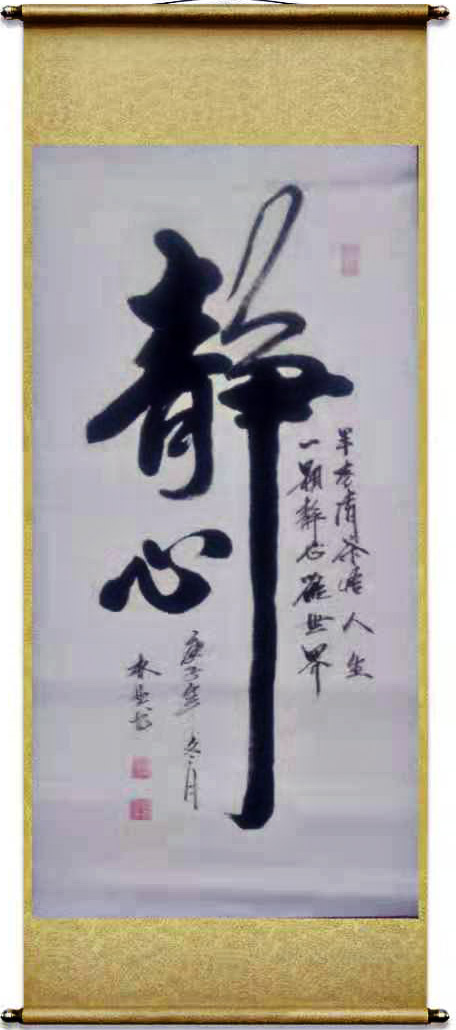 静心
半壶清茶悟人生
一颗静心观世界
庚子年冬月